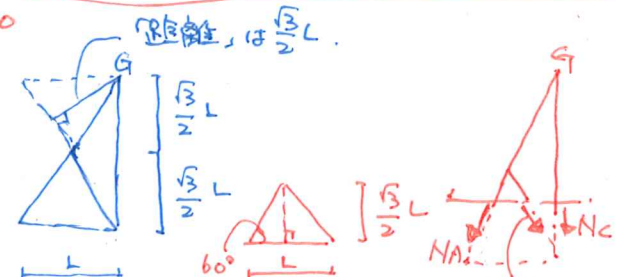 距離」は √3/2 L.
G
√3/2 L
√3/2 L
L
60°
L
√3/2 L
G
NA
Nc